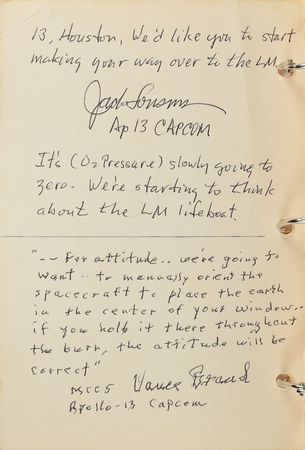 13, Houston, We'd like you to start
making your way over to the LM.
Jack Lousma
Ap 13 CAPCOM
It's (O2 Pressure) slowly going to
zero. We're starting to think
about the LM lifeboat.
"-- For attitude.. we're going to
want.. to manually orient the
spacecraft to place the earth
in the center of your window..
if you hold it there throughout
the burn, the attitude will be
correct"
Vance Brand
Apollo-13 Capcom